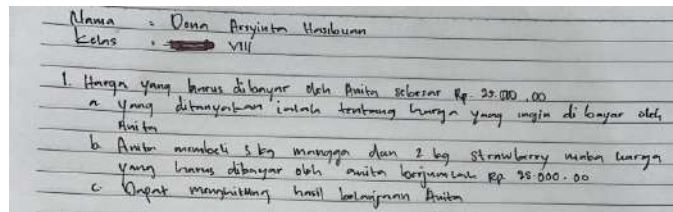 Nama : Dona Arsyinta Hasibuan
Kelas : VIII
1. Harga yang harus dibayar oleh Anita sebesar Rp. 95.000,00
a. yang ditanyakan ialah tentang harga yang ingin di bayar oleh
Anita
b. Anita membeli 3 kg mangga dan 2 kg strawberry maka harga
yang harus dibayar oleh anita berjumlah Rp 95.000.00
c. Dapat menghitung hasil belanjaan Anita